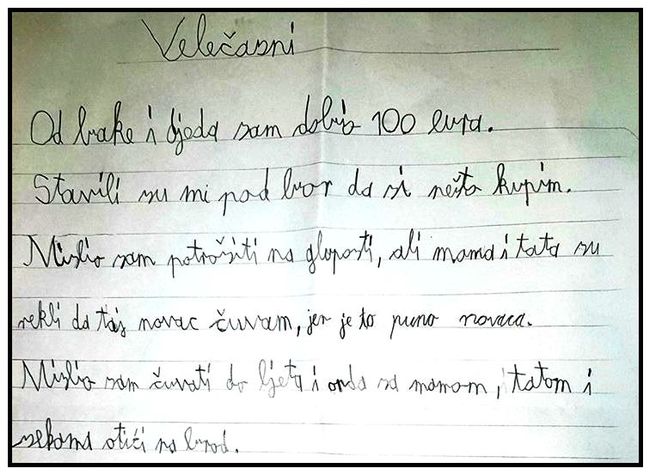 Velečasni
Od bake i djeda sam dobio 100 eura.
Stavili su mi pod bor da si nešto kupim.
Mislio sam potrošiti na gluposti, ali mama i tata su
rekli da taj novac čuvam, jer je to puno novaca.
Mislio sam čuvati do ljeta i onda sa mamom, tatom i
sekama otići na brod.